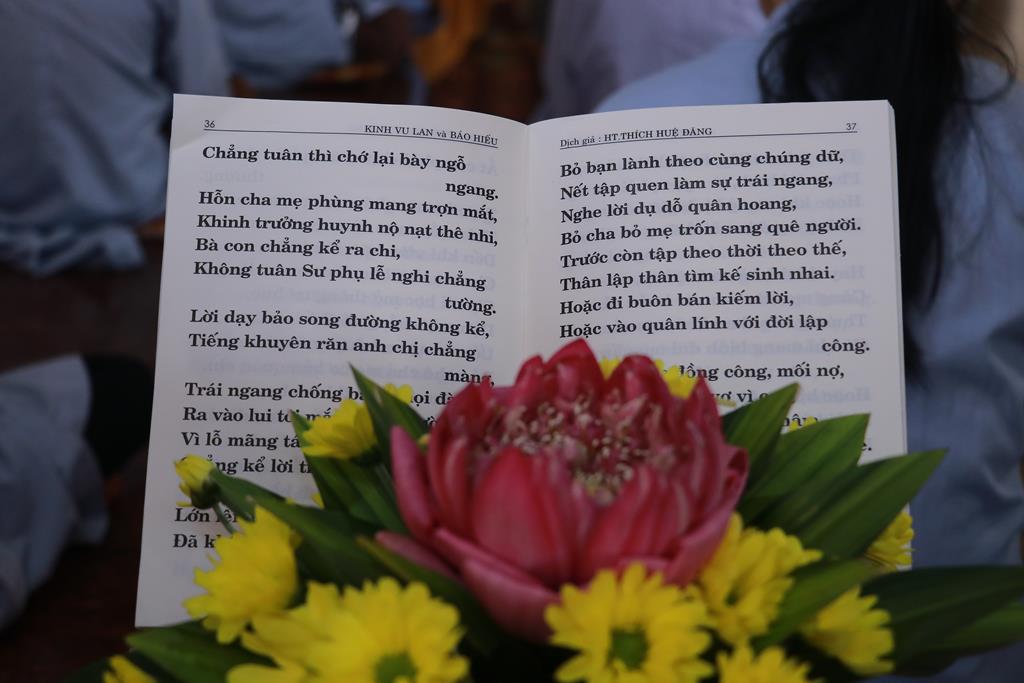 36
KINH VU LAN và BÁO HIẾU
Chẳng tuân thì chớ lại bày ngỗ
ngang.
Hỗn cha mẹ phùng mang trợn mắt,
Khinh trưởng huynh nộ nạt thê nhi,
Bà con chẳng kể ra chi,
Không tuân Sư phụ lễ nghi chẳng
tường.
Lời dạy bảo song đường không kể,
Tiếng khuyên răn anh chị chẳng
màng,
Trái ngang chống
Ra vào lui tới
Vì lỗ mãng
kể lời
Lớn
Đã
Dịch giả : HT.THÍCH HUỆ ĐĂNG
37
Bỏ bạn lành theo cùng chúng dữ,
Nết tập quen làm sự trái ngang,
Nghe lời dụ dỗ quân hoang,
Bỏ cha bỏ mẹ trốn sang quê người.
Trước còn tập theo thời theo thế,
Thân lập thân tìm kế sinh nhai.
Hoặc đi buôn bán kiếm lời,
Hoặc vào quân lính với đời lập
công.
đồng công, mối nợ,
vì